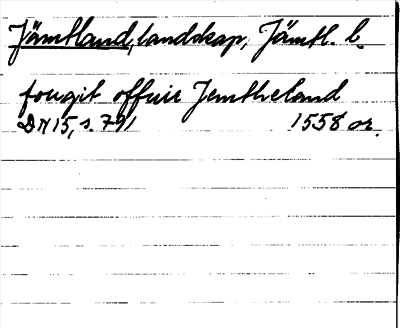 Jämtland, landskap, Jämtl. l.
fougit offuir Jemtheland
DN 15, s. 791 1558 or.